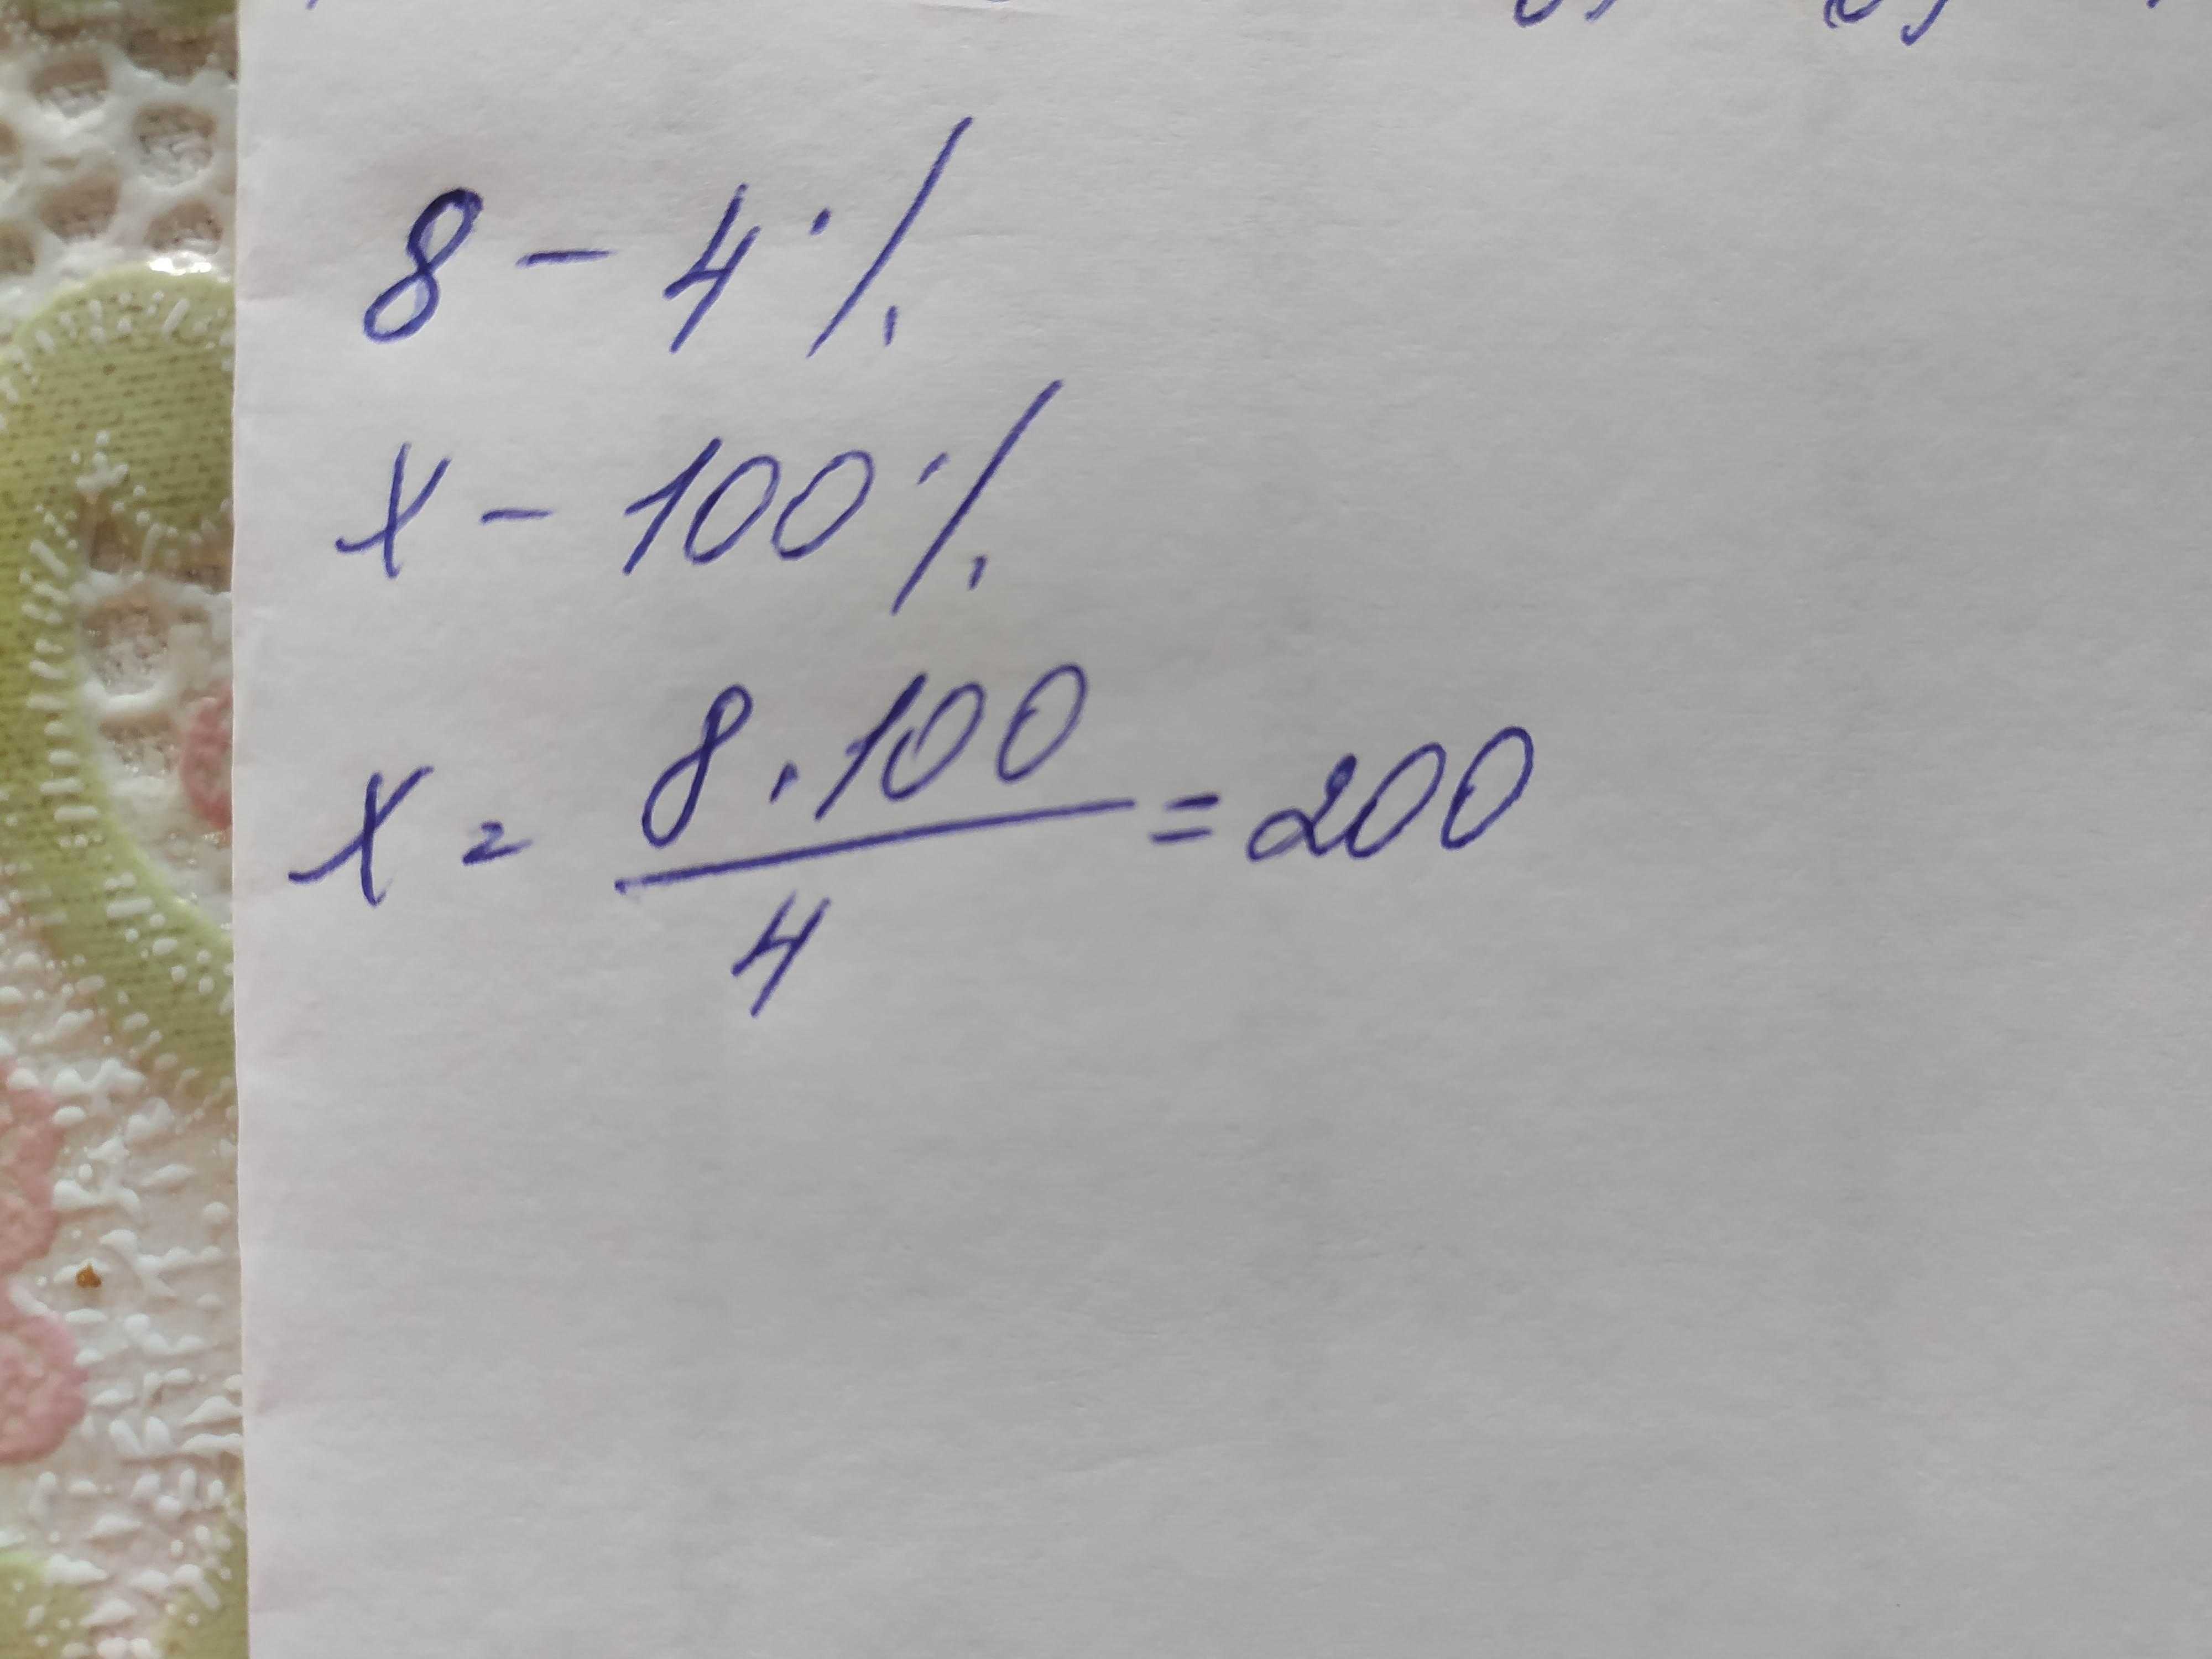 8 – 4%
x – 100%
x = 8 · 100 / 4 = 200